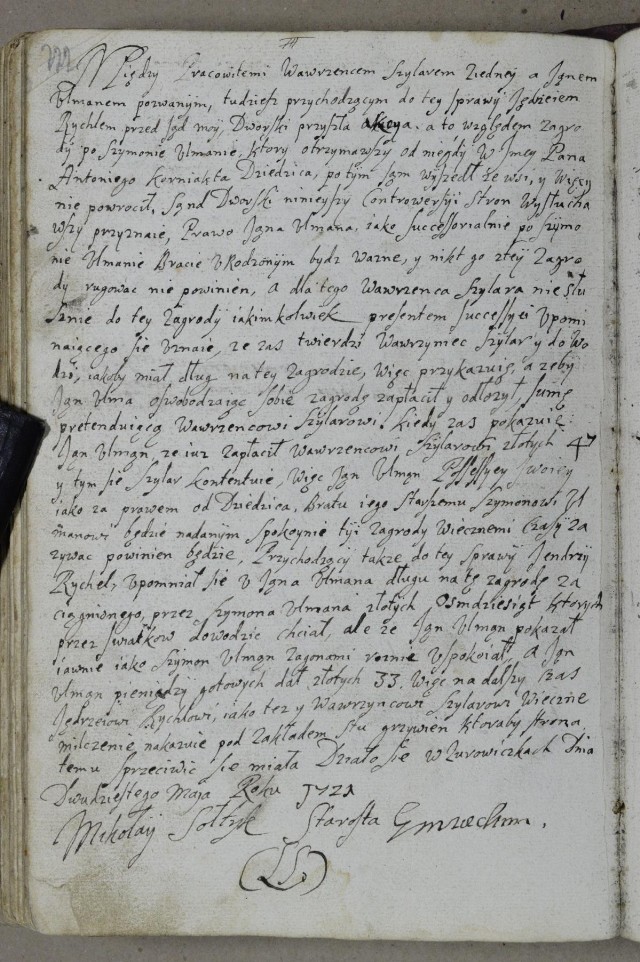 222
Między Pracowitemi Wawrzencem Szylarem ziedney a Janem
Ulmanem pozwanym, tudziesz przychodzącym do tey sprawy Jędrzeiem
Rychlem przed sąd moy Dworski przyszła akcya. a to względem zagro
dy po Szymonie Ulmanie, ktory otrzymawszy od niegdy W Jmci Pana
Antoniego Korniakta Dziedzica, potym sam wyszedł ze wsi, y więcy
nie powrocił, Sąnd Dworski ninieyszy Controwersyi stron wysłucha
wszy przyznaie, Prawo Jana Ulmana, iako successorialnie po Szymo
nie Ulmanie Bracie Urodzonym bydz wazne, y nikt go ztey zagro
dy rugowac nie powinien, a dla tego Wawrzenca Szylara nie słu
sznie do tey zagrody iakimkolwiek presentem successyi upomi
naiącego sie uznaie, ze zas twierdzi Wawrzyniec Szylar y dowo
dzi, iakoby miał dług na tey zagrodzie, więc przykazuię, azeby
Jan Ulma oswobodzaiąc sobie zagrodę zapłacił y odłozył, sumę
pretenduiącą Wawrzencowi Szylarowi. kiedy zas pokazuie
Jan Ulman, ze iuz zapłacił Wawrzencowi Szylarowi złotych 47
y tym sie Szylar kontentuie, więc Jan Ulman Possessyey swoiey
iako za prawem od Dziedzica, Bratu iego starszemu Szymonowi Ul
manowi będzie nadanym spokoynie tyi zagrody wiecznemi czasy za
zywac powinien będzie, Przychodzący takze do tey sprawy Jendrzy
Rychel, upomniał sie u Jana Ulmana długu na tę zagrodę za
ciągnionego, przez Szymona Ulmana złotych osmdziesiąt ktorych
przez swiatkow dowodzic chciał, ale ze Jan Ulman pokazał
iawnie iako Szymon Ulman zagonami roznie uspokoiał, a Jan
Ulman pieniędzy gotowych dał złotych 33. Więc na dalszy czas
Jędrzeiowi Rychlowi, iako tez y Wawrzyncowi Szylarowi wieczne
milczenie nakazuie pod zakładem stu grzywien ktoraby strona
temu sprzeciwic sie miała Działo sie w Zurowiczkach Dnia
Dwudziestego Maja Roku 1721
Mikołay Sołtyk Starosta
(LS)